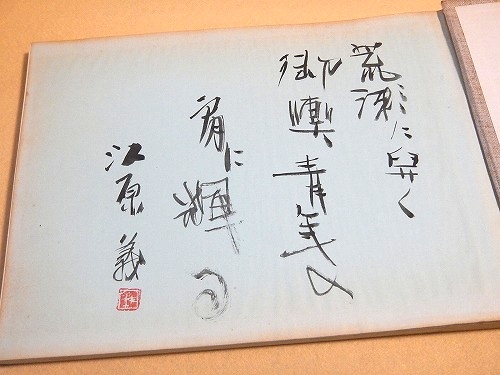 荒瀬に舁く
御輿青年の
肩に輝る
江原義